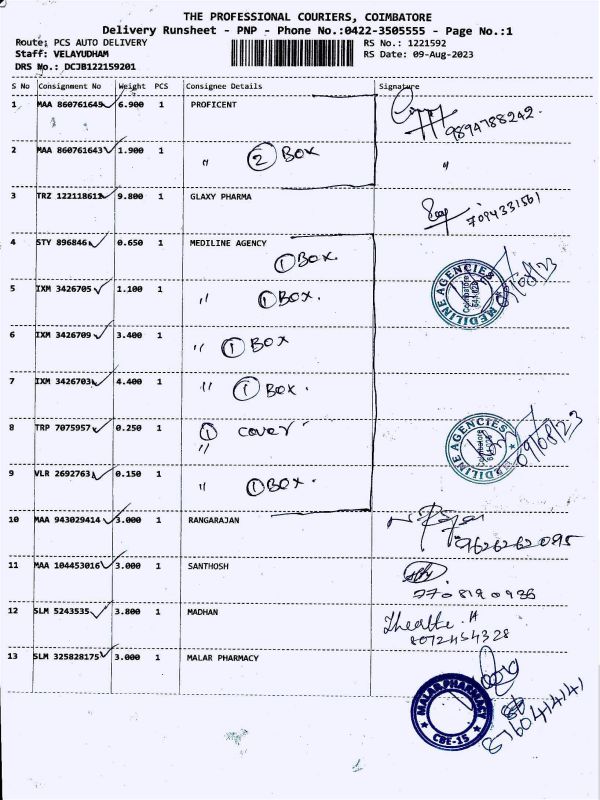 THE PROFESSIONAL COURIERS, COIMBATORE
Delivery Runsheet - PNP - Phone No.:0422-3505555 - Page No.:1
Route: PCS AUTO DELIVERY RS No.: 1221592
Staff: VELAYUDHAM RS Date: 09-Aug-2023
DRS No.: DCJB122159201
S No Consignment No Weight PCS Consignee Details Signature
1 MAA 860761649 6.900 1 PROFICENT
9894788242
2 MAA 860761643 1.900 1 " 2 BOX "
3 TRZ 122118612 9.800 1 GLAXY PHARMA
7094331561
4 STY 896846 0.650 1 MEDILINE AGENCY
1 BOX
MEDILINE AGENCIES Coimbatore 09/08/23
5 IXM 3426705 1.100 1 " 1 BOX.
6 IXM 3426709 3.400 1 " 1 BOX
7 IXM 3426703 4.400 1 " 1 BOX.
8 TRP 7075957 0.250 1 1 cover
"
MEDILINE AGENCIES Coimbatore 09/08/23
9 VLR 2692763 0.150 1 " 1 BOX.
10 MAA 943029414 3.000 1 RANGARAJAN
9626262095
11 MAA 104453016 3.000 1 SANTHOSH
7708190936
12 SLM 5243535 3.800 1 MADHAN
8072454328
13 SLM 325828175 3.000 1 MALAR PHARMACY
MALAR PHARMACY CBE-15
8760414141